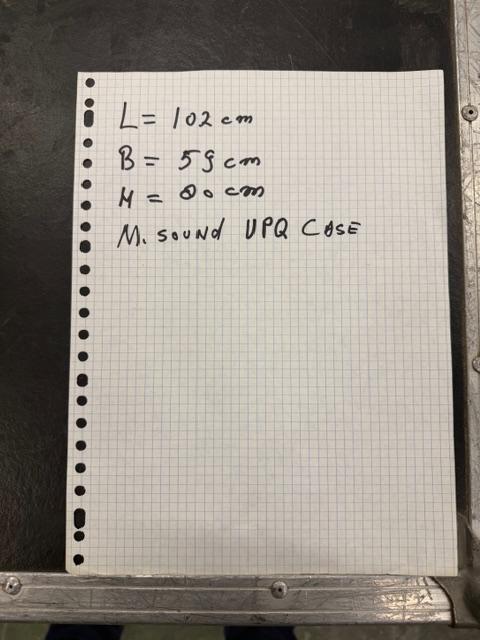 L = 102 cm
B = 59 cm
H = 80 cm
M. SOUND UPQ CASE